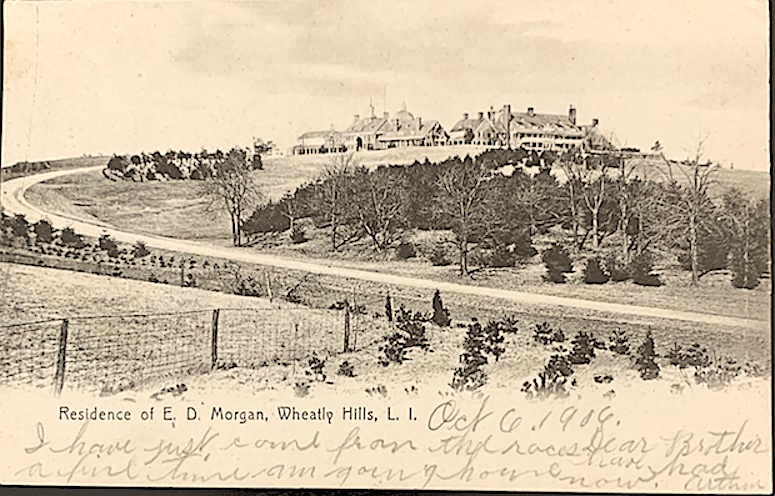 Residence of E. D. Morgan, Wheatly Hills, L. I. Oct 6, 1906.
I have just come from the races Dear Brother
a fine time am going home now. have had
Arthur